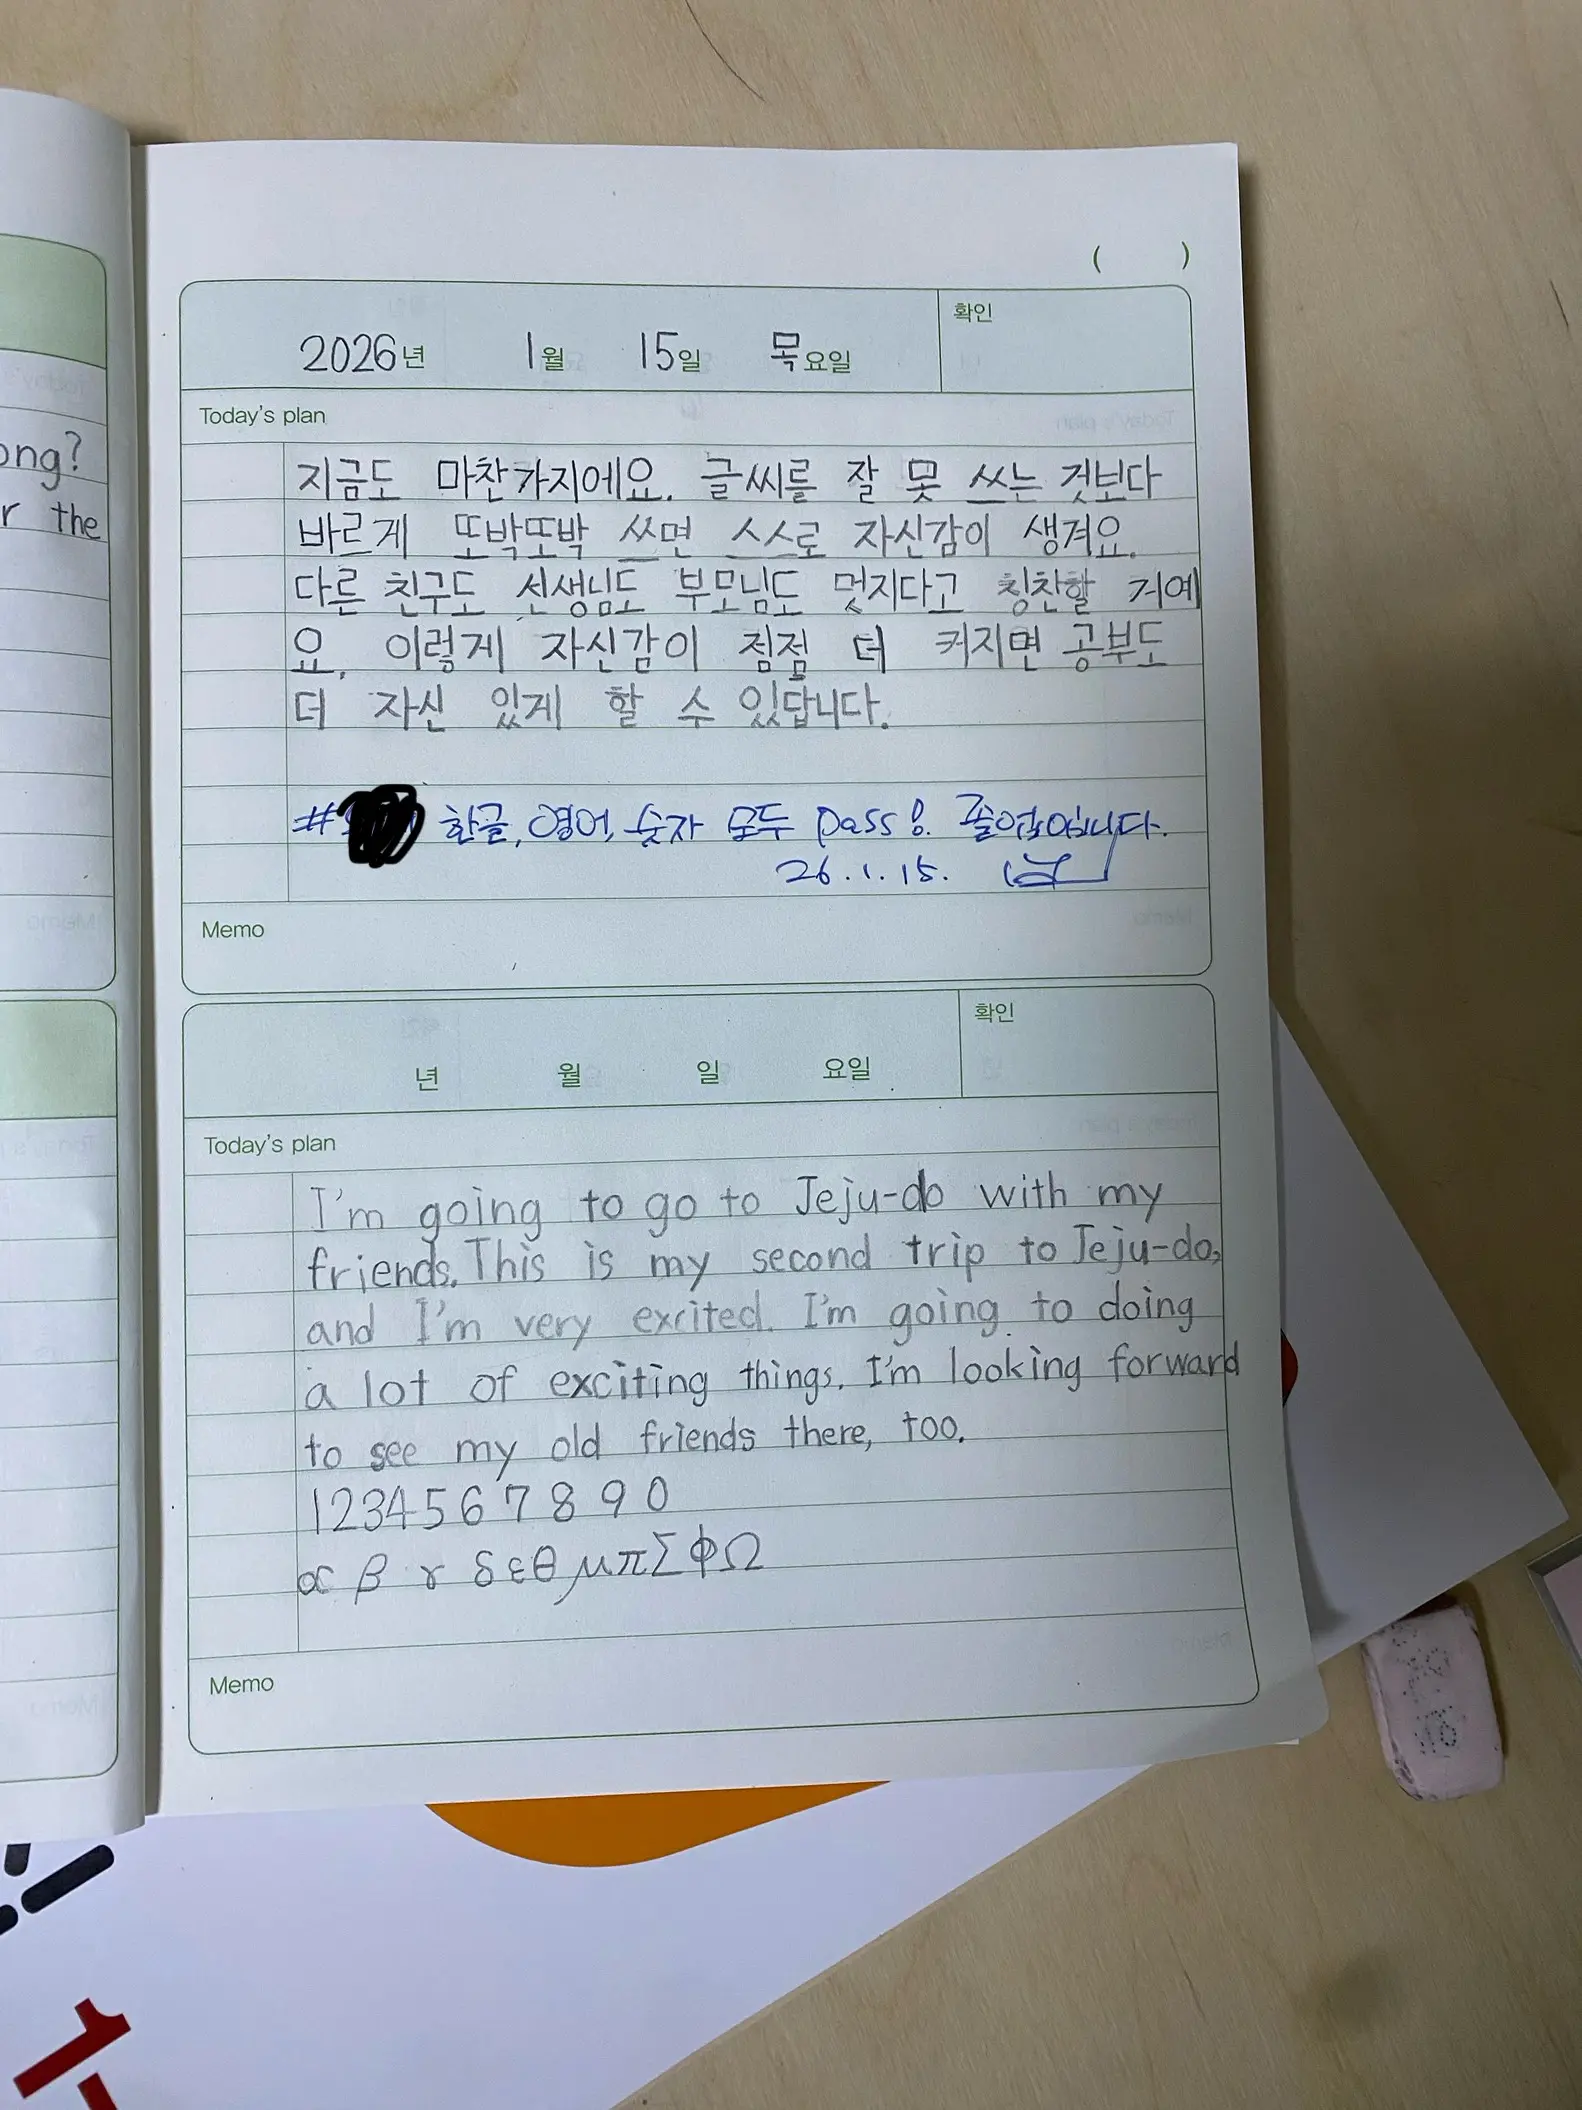 ong?
r the
( )
확인
2026년 1월 15일 목요일
Today's plan
지금도 마찬가지에요. 글씨를 잘 못 쓰는 것보다
바르게 또박또박 쓰면 스스로 자신감이 생겨요.
다른 친구도 선생님도 부모님도 멋지다고 칭찬할 거예
요. 이렇게 자신감이 점점 더 커지면 공부도
더 자신 있게 할 수 있답니다.
# 한글, 영어, 숫자 모두 pass! 졸업입니다.
26.1.15.
Memo
확인
년 월 일 요일
Today's plan
I'm going to go to Jeju-do with my
friends. This is my second trip to Jeju-do,
and I'm very excited. I'm going to doing
a lot of exciting things. I'm looking forward
to see my old friends there, too.
1 2 3 4 5 6 7 8 9 0
∝ β γ δ ε θ μ π Σ Φ Ω
Memo